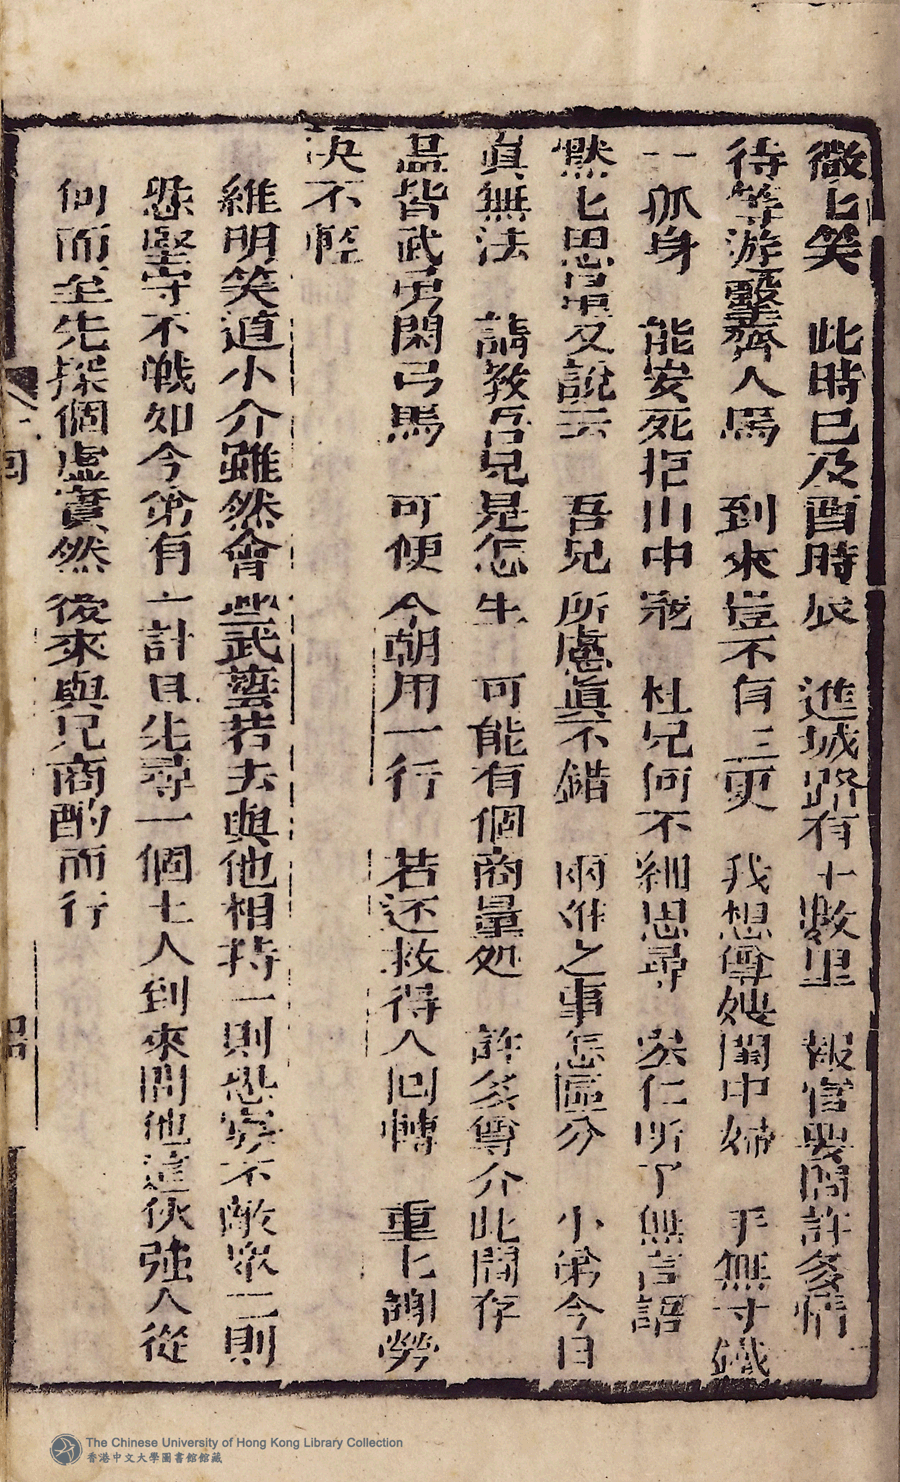 微匕笑　此時已及酉時辰　進城路有十數里　報官要問許多情
待等游擊齊人馬　到來豈不有三更　我想尊嫂閨中婦　手無寸鐵
一孤身　能安死拒山中寇　杜兄何不細思尋　吳仁所了無言語
默匕思量又說云　吾兄所慮眞不錯　兩難之事怎區分　小弟今日
眞無法　請教吾兄是怎生　可能有個商量処　許多尊介此間存
皆武勇閑弓馬　可便今朝用一行　若还救得人回轉　重匕謝勞
决不輕
維明笑道小介雖然會些武藝若去與他相持一則恐寡不敵衆二則
恐堅守不戰如今弟有一計且先尋一個土人到來問他這伙強人從
何而至先探個虛實然後來與兄商酌而行
回
The Chinese University of Hong Kong Library Collection
香港中文大學圖書館館藏